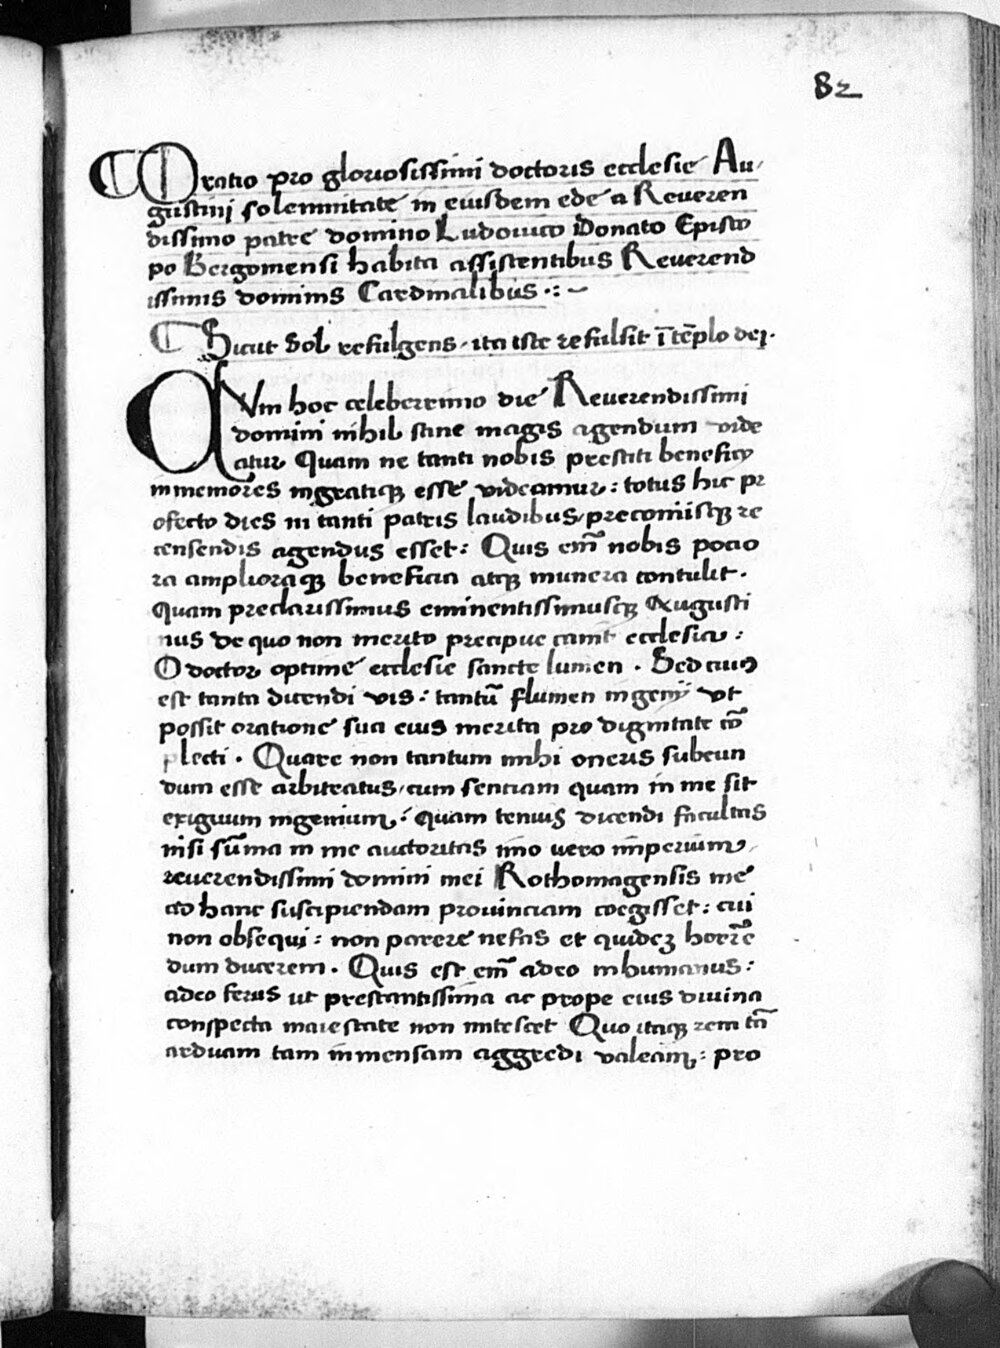 82
Oratio pro gloriosissimi doctoris ecclesie Au
gustinj solemnitate in eiusdem ede a Reueren
dissimo patre domino Ludouico Donato Episco
po Bergomensi habita assistentibus Reuerend
issimis dominis Cardinalibus .:~
Sicut Sol refulgens, ita iste refulsit ī tēplo dej.
Cum hoc celeberrimo die Reuerendissimi
domini nihil sane magis agendum vide
atur Quam ne tanti nobis prestiti beneficij
inmemores ingratiqꝫ esse videamur: totus hic pr
ofecto dies in tanti patris laudibus, preconiisqꝫ re
censendis agendus esset: Quis em̄ nobis pocio
ra amplioraqꝫ beneficia atqꝫ munera contulit.
Quam preclarissimus eminentissimusqꝫ Augusti
nus de quo non merito precipue canit ecclesia:
O doctor optime ecclesie sancte lumen. Sed cuius
est tanta dicendi vis: tantū flumen ingenij vt
possit oratione sua eius merita pro dignitate cō
plecti. Quare non tantum mihi oneris subeun
dum esse arbitratus, cum sentiam quam in me sit
exiguum ingenium: quam tenuis dicendi facultas
nisi sūma in me auctoritas imo uero imperium,
reuerendissimi domini mei Rothomagensis me
ad hanc suscipiendam prouinciam coegisset: cui
non obsequi: non parere nefas et quidez horrē
dum ducerem. Quis est em̄ adeo inhumanus:
adeo ferus ut prestantissima ac prope eius diuina
conspecta maiestate non mitescet Quo itaqꝫ rem tā
arduam tam inmensam aggredi valeam: pro